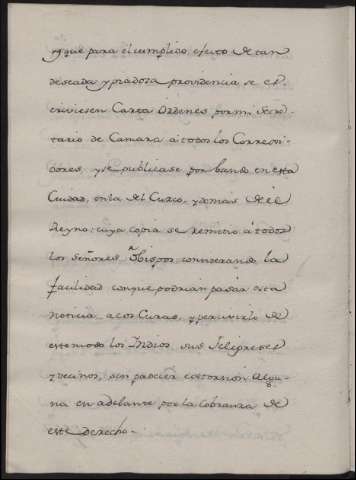 y que para el cumplido efecto de tan
deseada y piadosa providencia se es-
criviesen Carta Ordenes por mi Secre-
tario de Camara a todos los Corregi-
dores, y se publicase por bando en esta
Ciudad, en la del Cuzco, y demas de el
Reyno: cuya copia se remitio à todos
los Señores Obispos, considerando la
facilidad con que podrian pasar esta
noticia a los Curas, y percivirlo de
este modo los Indios sus feligreses
y vecinos, sin padecer extorsion algu-
na en adelante por la cobranza de
este derecho.